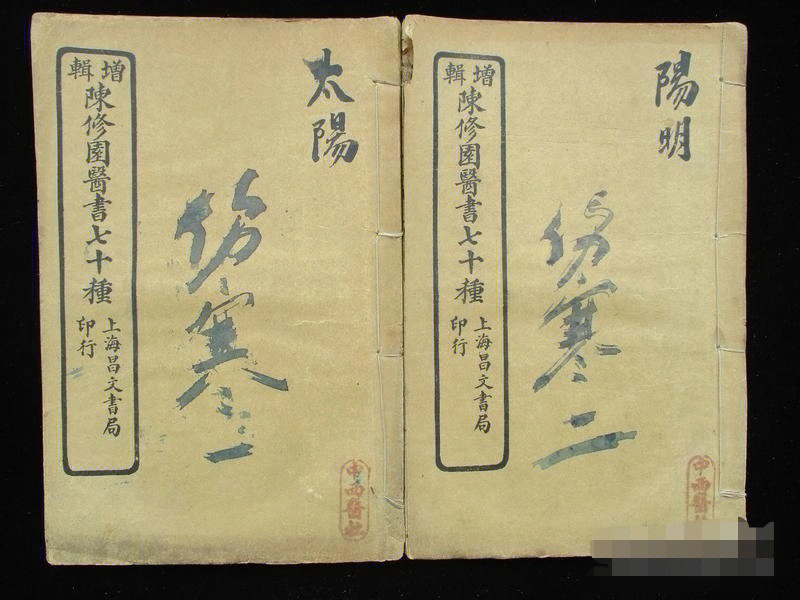 太陽
伤寒一
增輯
陳修園醫書七十種
上海昌文書局
印行
中西醫社
陽明
伤寒二
增輯
陳修園醫書七十種
上海昌文書局
印行
中西醫